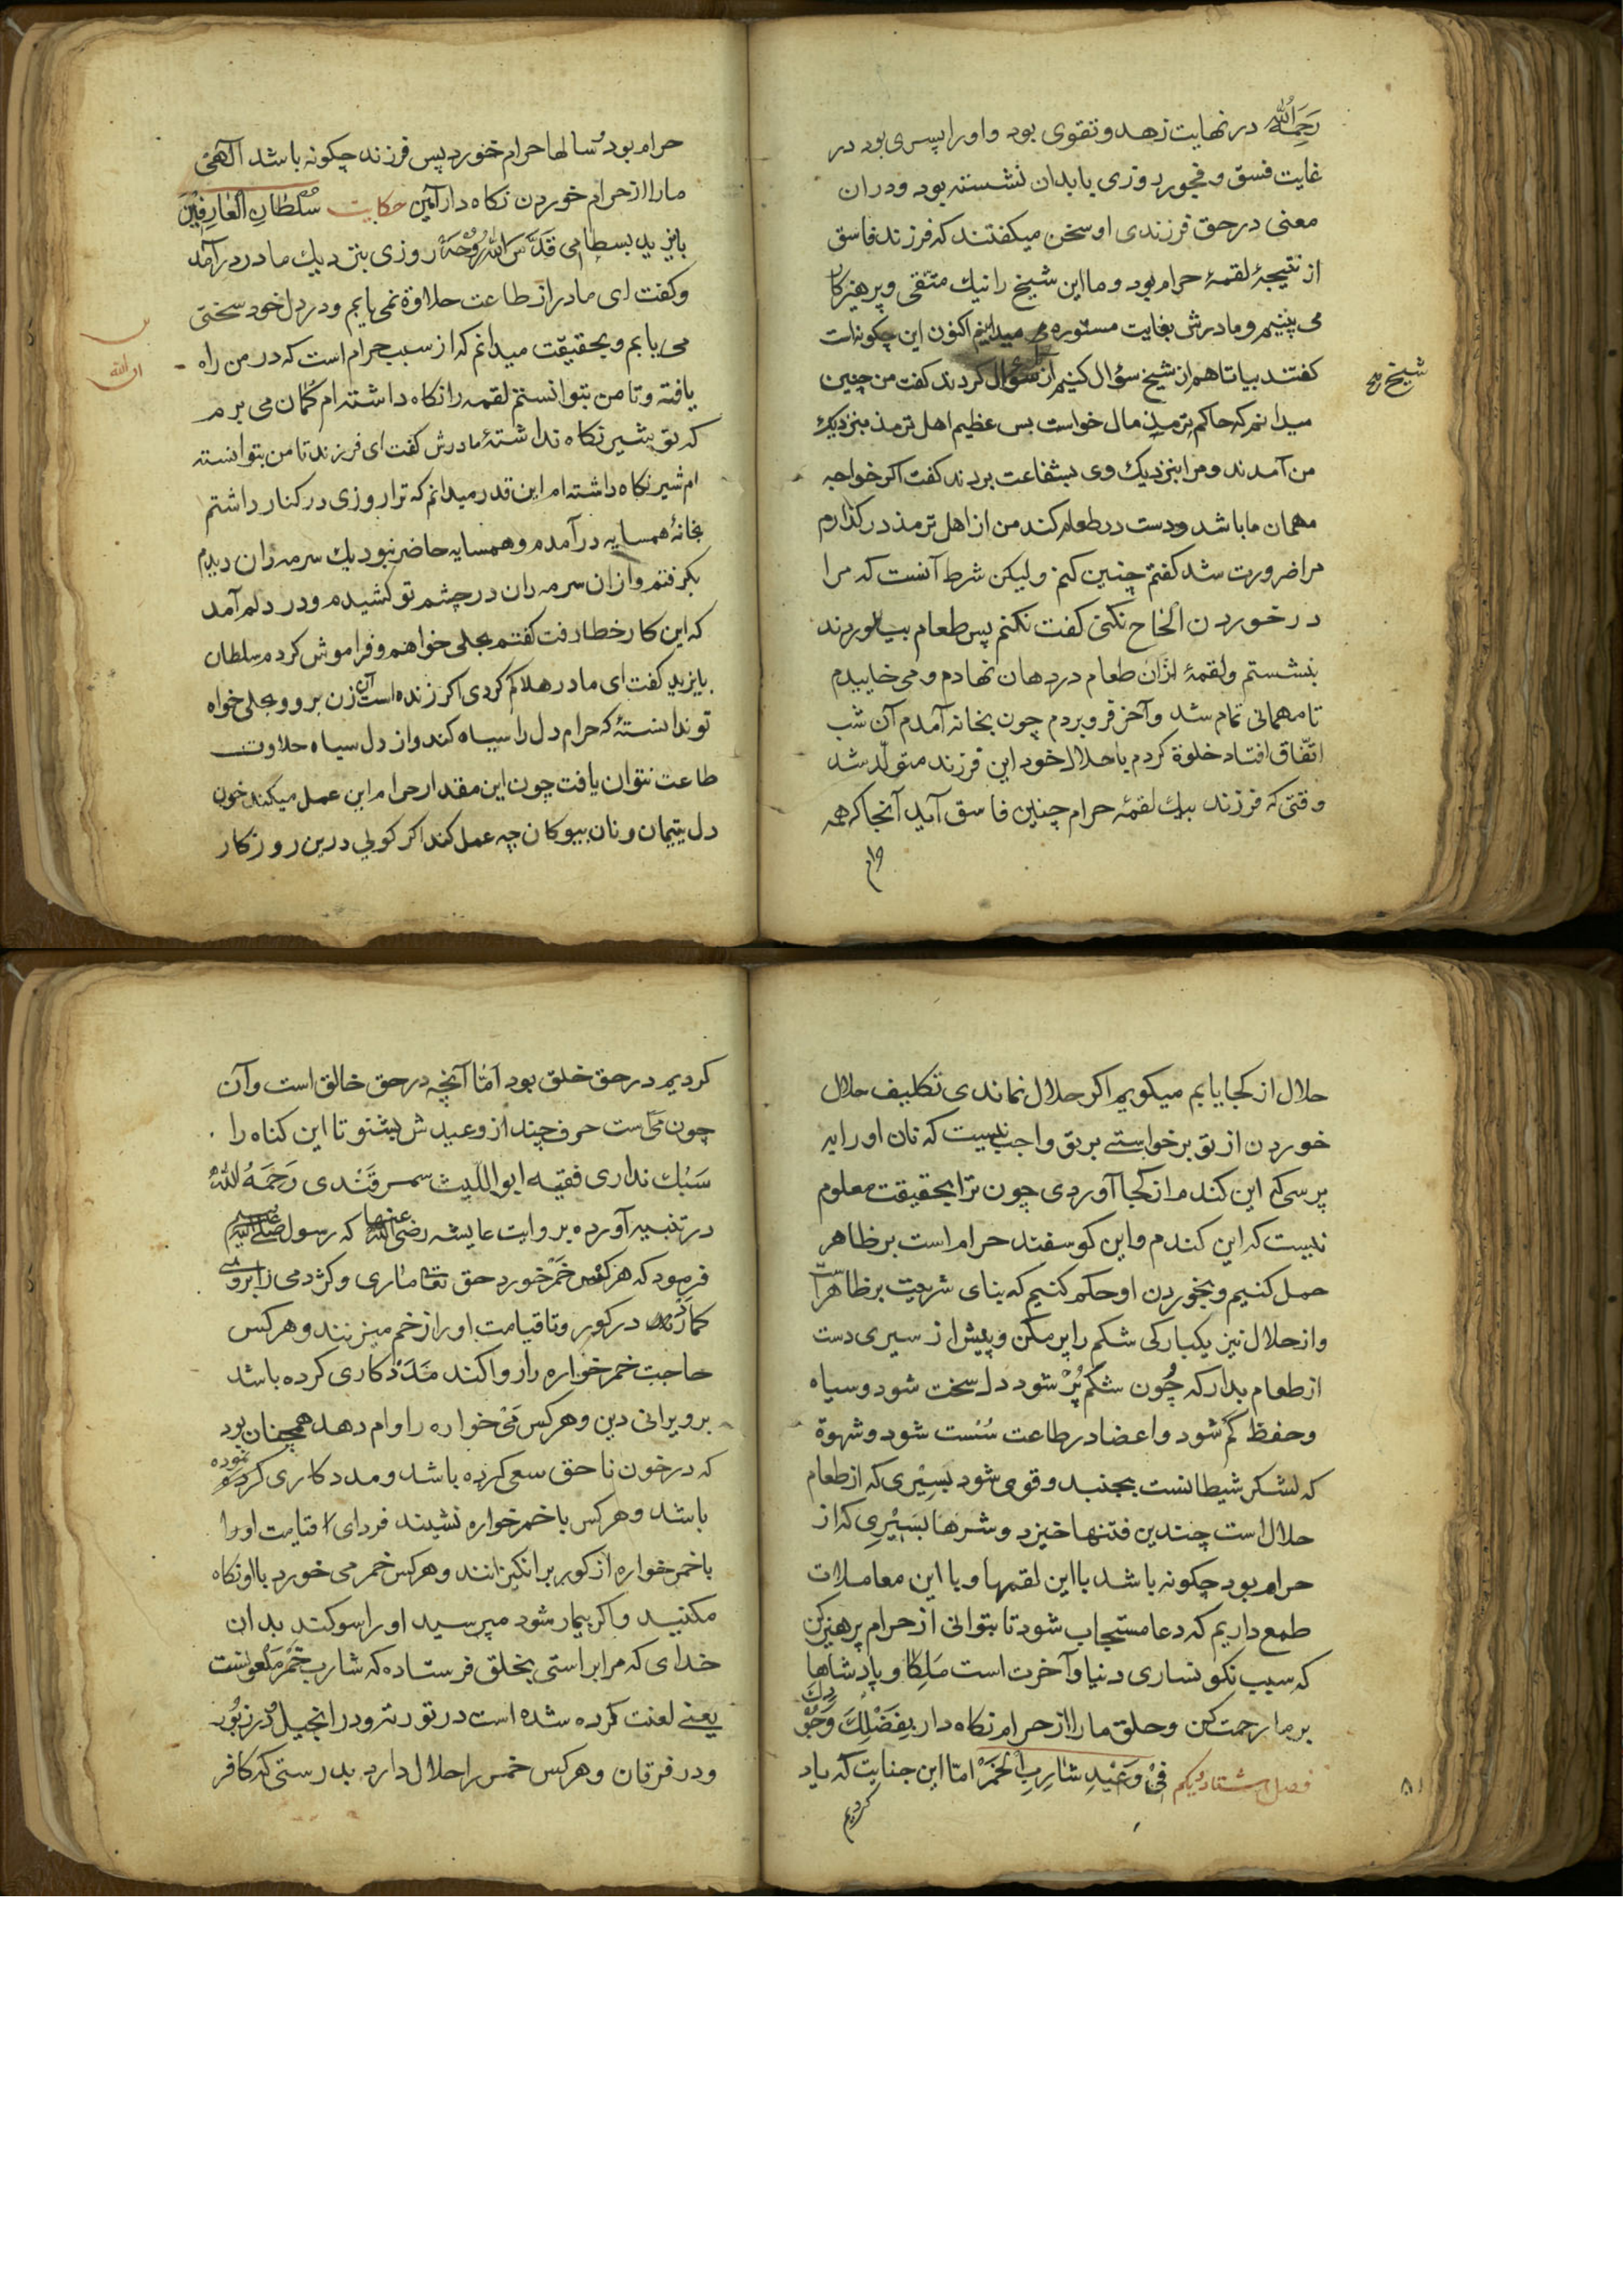 رَحِمَهُ اللّٰه در نهایت زهد و تقوی بود و او را پسری بود در
غایت فسق و فجور روزی یا بدان نشسته بود و در ان
معنی در حق فرزندی او سخن میکفتند که فرزند فاسق
از نتیجهٔ لقمهٔ حرام بود و ما این شیخ را نیك متقی و پرهیزکار
می بینیم و مادرش بغایت مستوره می میدانیم اکنون این چکونه است
کفتند بیا تا هم از شیخ سؤال کنیم از شیخ سؤال کردند کفت من چنین
شیخ رح
میدانم که حاکم ترمذ مال خواست بس عظیم اهل ترمذ بنزدیك
من آمدند و مرا بنزدیك وی بشفاعت بردند کفت اکر خواجه
مهمان ما باشد و دست در طعام کند من از اهل ترمذ در کذارم
مرا ضرورت شد کفتم چنین کنم ولیکن شرط آنست که مرا
در خوردن الحاح نکنی کفت نکنم پس طعام بیاوردند
بنشستم و لقمهٔ ازان طعام در دهان نهادم و می خاییدم
تا مهمانی تمام شد و آخر فرو بردم چون بخانه آمدم آن شب
اتّفاق افتاد خلوة کردم با حلال خود این فرزند متولّد شد
وقتی که فرزند بیك لقمهٔ حرام چنین فاسق آید آنجا که همه
حرام
حرام بود و سالها حرام خورد پس فرزند چکونه باشد الٓهی
ما را از حرام خوردن نکاه دار آمین حکایت سُلطانِ العَارِفِیْنَ
بایزید بسطامی قَدَّسَ اللّٰهُ رُوْحَهُ روزی بنزدیك مادر در آمد
و کفت ای مادر از طاعت حلاوة نمی یابم و در دل خود سختی
می یابم و بحقیقت میدانم که از سبب حرام است که در من راه
ان الله
یافته و تا من بتوانستم لقمه را نکاه داشته ام کمان می برم
که تو بشیر نکاه نداشتهٔ مادرش کفت ای فرزند تا من بتوانسته
ام شیر نکاه داشته ام این قدر میدانم که ترا روزی در کنار داشتم
بخانهٔ همسایه در آمدم و همسایه حاضر نبود یك سرمه دان دیدم
بکرفتم و ازان سرمه دان در چشم تو کشیدم و در دلم آمد
که این کار خطا رفت کفتم بحلی خواهم و فراموش کردم سلطان
بایزید کفت ای مادر هلاکم کردی اکر زنده است آن زن برو و بحلی خواه
تو ندانستهٔ که حرام دل را سیاه کند و از دل سیاه حلاوت
طاعت نتوان یافت چون این مقدار حرام این عمل میکند خون
دل یتیمان و نان بیوکان چه عمل کند اکر کویی درین روزکار
حلال از کجا یابم میکویم اکر حلال نماندی تکلیف حلال
خوردن از تو برخواستی بر تو واجب نیست که نان او را به
پرسی که این کندم از کجا آوردی چون ترا بحقیقت معلوم
نیست که این کندم و این کوسفند حرام است بر ظاهر
حمل کنیم و بخوردن او حکم کنیم که بنای شریعت بر ظاهراست
و از حلال نیز یکبارکی شکم را پر مکن و پیش از سیری دست
از طعام بدار که چُون شکم پُرْ شود دل سخت شود و سیاه
و حفظ کم شود و اعضا در طاعت سُست شود و شهوة
که لشکر شیطانست بجنبد و قوی شود بسیری که از طعام
حلال است چندین فتنها خیزد و شرها بسیری که از
حرام بود چکونه باشد با این لقمها و با این معاملات
طمع داریم که دعا مستجاب شود تا بتوانی از حرام پرهیز کن
که سبب نکونساری دنیا و آخرت است مَلِکا و پادشاها
بر ما رحمت کن و حلق ما را از حرام نکاه دار بِفَضْلِكَ وَجُوْدِكَ
فصل هشتاد و یکم فِیْ وَعِیْدِ شَارِبِ الْخَمْرْ امّا این جنایت که یاد
۸۱
کردیم
کردیم در حق خلق بود اَمّا آنچه در حق خالق است و آن
چون می است حرف چند از وعیدش بشنو تا این کناه را
سَبُك نداری فقیه ابو اللّیث سمرقَنْدی رَحِمَهُ اللّٰهُ
در تنبیه آورده بروایت عایشه رضی الله عنها که رسول صلی الله علیه
فرمود که هرکس خمر خورد حق تعا ماری و کژدمی را بروی
کمارند در کور و تا قیامت او را زخم میزنند و هرکس
حاجت خمر خواره را روا کند مَدَدْ کاری کرده باشد
بر ویرانی دین و هرکس مَیْ خواره را وام دهد همچنان بود
که در خون ناحق سعی کرده باشد و مدد کاری نموده
باشد و هرکس با خمر خواره نشیند فردای قیامت او را
با خمر خواره از کور برانکیزانند و هرکس خمر می خورد با او نکاه
مکنید و اکر بیمار شود مپرسید او را سوکند بدان
خدای که مرا براستی بخلق فرستاده که شارب خَمْر مَلْعونست
یعنی لعنت کرده شده است در توریة و در انجیل و در زبُور
و در فرقان و هرکس خمر را حلال دارد بدرستی که کافر